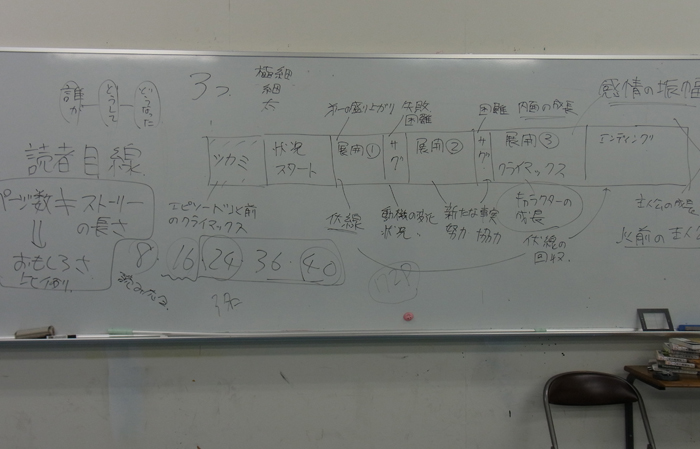 誰が
どうして
どうなった
3つ
極細
細
太
第一の盛り上がり
失敗
困難
困難
内面の成長
感情の振幅
読者目線
ツカミ
状況
スタート
展開①
サグ
展開②
サグ
展開③
クライマックス
エンディング
ページ数≠ストーリー
の長さ
⇓
おもしろさ
エピソード以前
のクライマックス
伏線
動機の変化
状況、
新たな事実
努力 協力
キャラクターの
成長
伏線の
回収
以前の主人公
8・16 24 36・40
読み切り